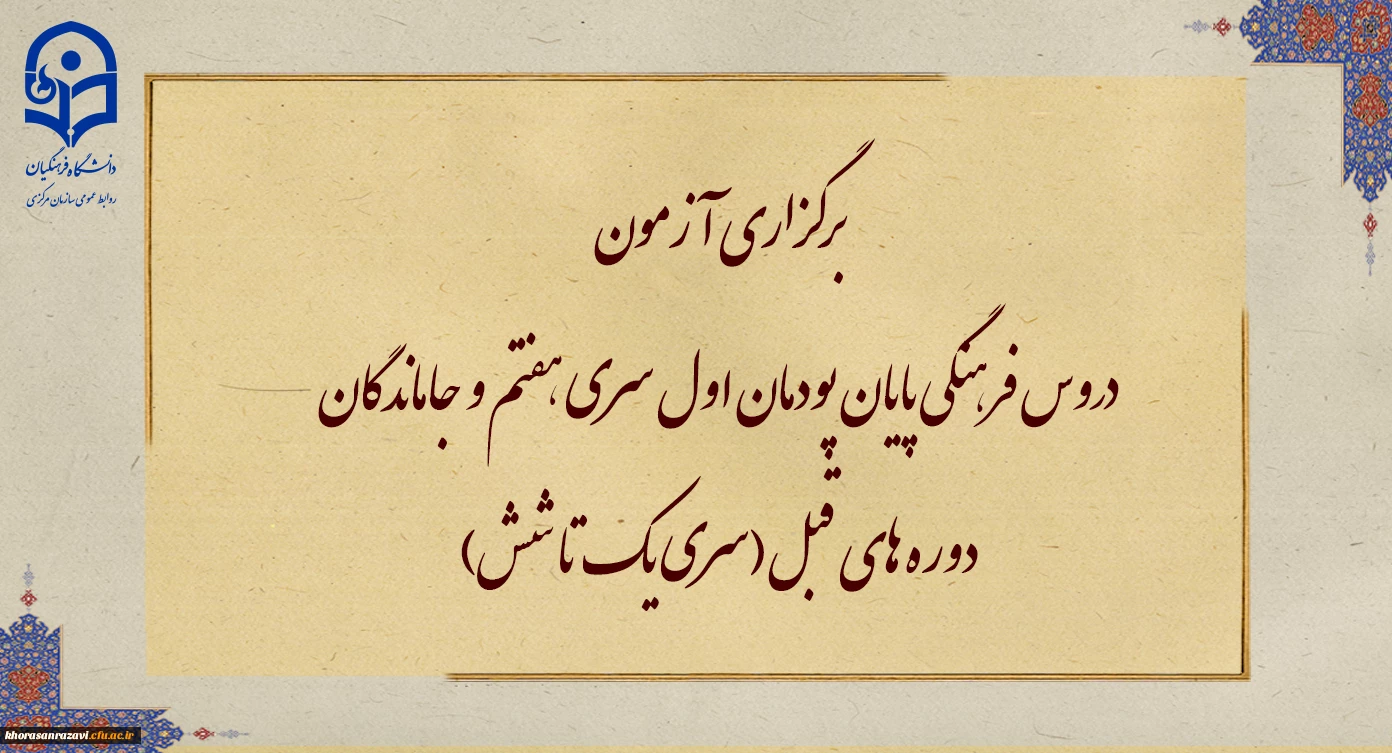 دانشگاه فرهنگیان
روابط عمومی سازمان مرکزی
برگزاری آزمون
دروس فرهنگی پایان پودمان اول سری هفتم و جاماندگان
دوره های قبل (سری یک تا شش)
khorasanrazavi.cfu.ac.ir